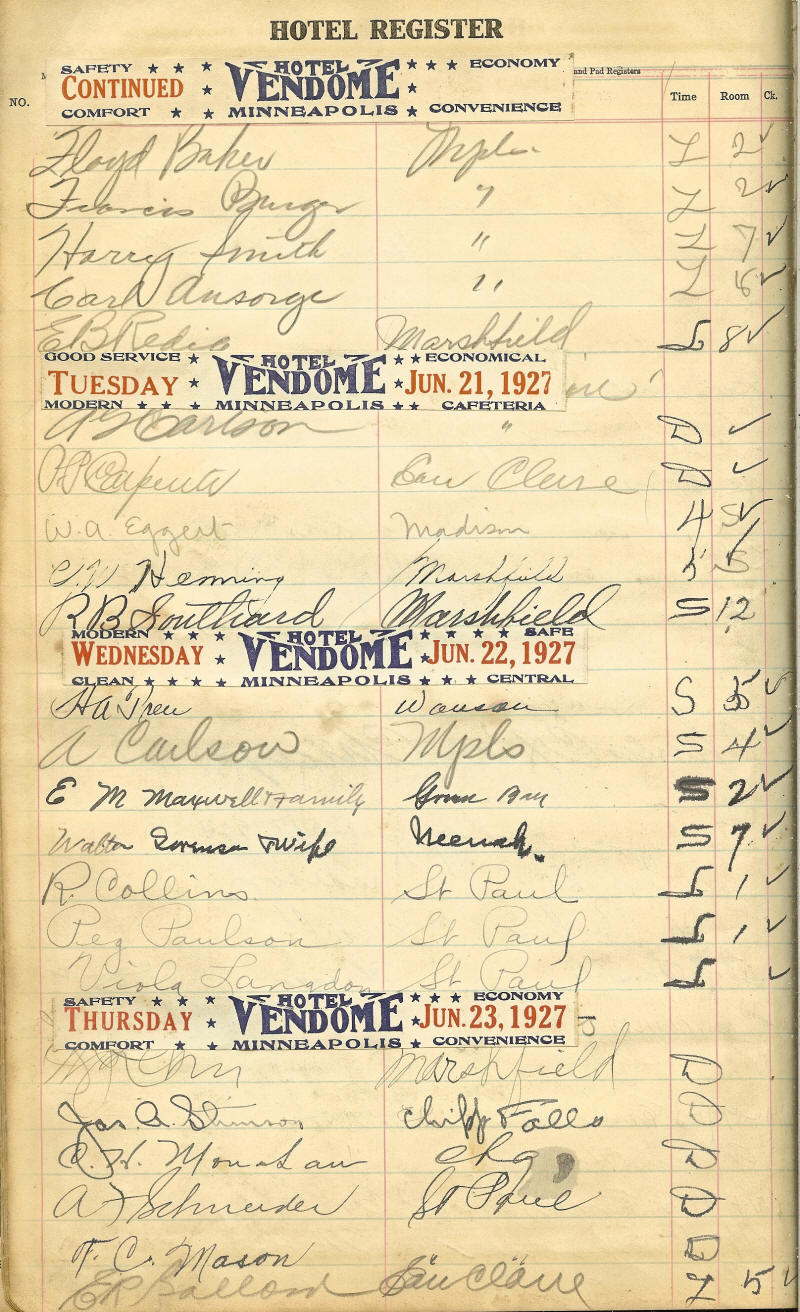 HOTEL REGISTER
SAFETY ★ ★ ★ HOTEL ★ ★ ★ ECONOMY and Pad Registers
CONTINUED ★ VENDOME ★
COMFORT ★ ★ MINNEAPOLIS ★ CONVENIENCE
NO. Time Room Ck.
Floyd Baker Mpls. L 2 ✓
Francis Burger " L 2 ✓
Harry Smith " L 7 ✓
Carl Ansorge " L 6 ✓
E B Redig Marshfield L 8 ✓
GOOD SERVICE ★ HOTEL ★ ★ ECONOMICAL
TUESDAY ★ VENDOME ★ JUN. 21, 1927
MODERN ★ ★ ★ MINNEAPOLIS ★ ★ CAFETERIA
Carlson " D ✓
Carpenter Eau Claire D ✓
W. A. Eggert Madison 4 5 ✓
Henning Marshfield 5
R B Southard Marshfield S 12
MODERN ★ ★ ★ HOTEL ★ ★ ★ ★ SAFE
WEDNESDAY ★ VENDOME ★ JUN. 22, 1927
CLEAN ★ ★ ★ ★ MINNEAPOLIS ★ ★ ★ CENTRAL
Wausau S ✓
A Carlson Mpls S 4 ✓
E M Maxwell & Family Green Bay S 2 ✓
Walter Sorenson & Wife Neenah. S 7 ✓
R. Collins St Paul L 1 ✓
Peg Paulson St Paul L 1 ✓
Viola Langdon St Paul L ✓
SAFETY ★ ★ ★ HOTEL ★ ★ ★ ECONOMY
THURSDAY ★ VENDOME ★ JUN. 23, 1927
COMFORT ★ ★ ★ MINNEAPOLIS ★ ★ CONVENIENCE
Marshfield D
Jas. A. Stinson Chipp Falls D
C. H. Monahan Chg D
A F Schneider St Paul D
F. C. Mason " " D
E R Ballard Eau Claire L 5 ✓